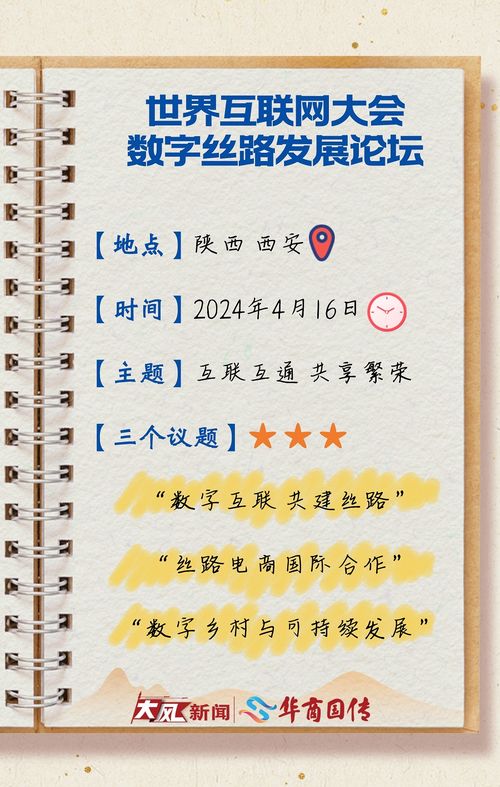 世界互联网大会
数字丝路发展论坛
【地点】陕西 西安
【时间】2024年4月16日
【主题】互联互通 共享繁荣
【三个议题】
“数字互联 共建丝路”
“丝路电商国际合作”
“数字乡村与可持续发展”
大风新闻 华商国传